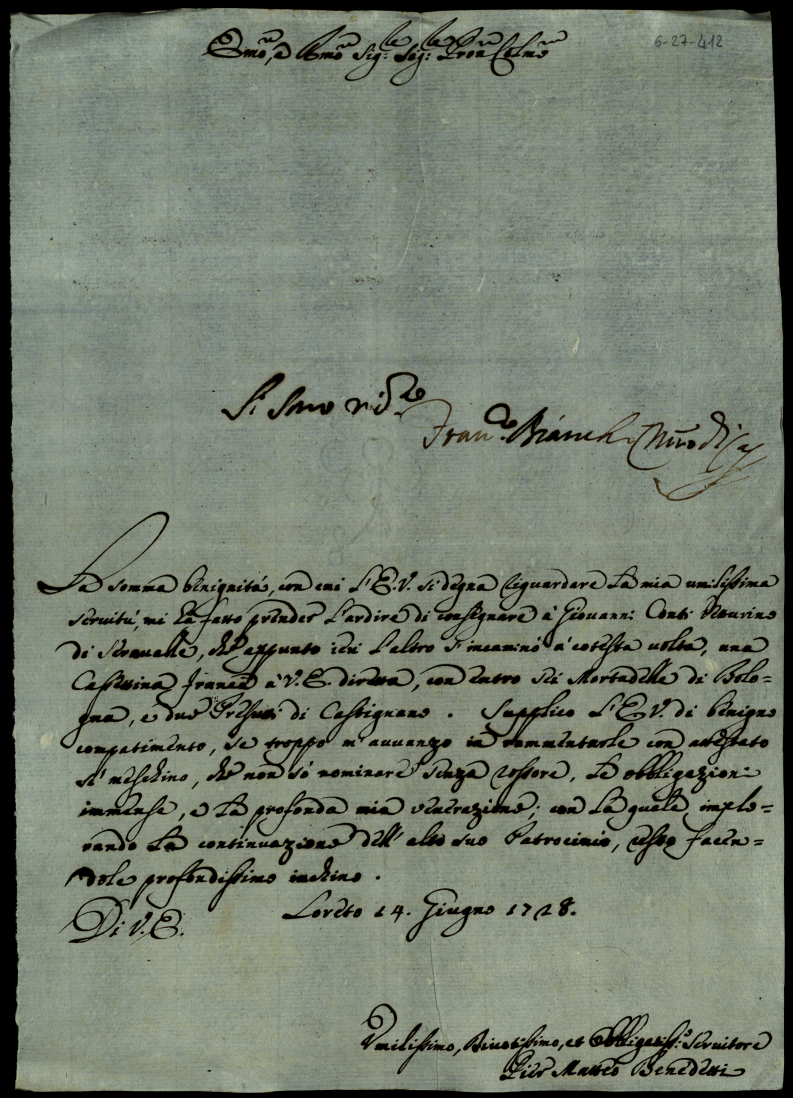 Emo, e Rmo Sig:re Sig:re Pron Colmo
6-27-412
Si Smo
Fran:co Bianch
La somma benignità, con cui L'E.V. si degna riguardare La mia umilissima
servitù, mi há fatto prender L'ardire di consignare à Giovanni Conti
di Serravalle, che appunto ieri L'altro s'incaminò à cotesta volta, una
Cassettina Franca à V.E. diretta, con entro sei Mortadelle di Bolo=
gna, e due Presutti di Castignano. Supplico L'E.V. di benigno
compatimento, se troppo m'avvanzo in rammentarle con attestato
sì meschino, che non sò nominare senza rossore, Le obbligazioni
immense, e La profonda mia venerazione; con La quale implo=
rando La continuazione dell'alto suo Patrocinio, resto facen=
dole profondissimo inchino.
Di V.E. Loreto 14. Giugno 1728.
Vmilissimo, Divotissimo, et Obbligatiss:o Servitore
Pier Matteo Benedetti